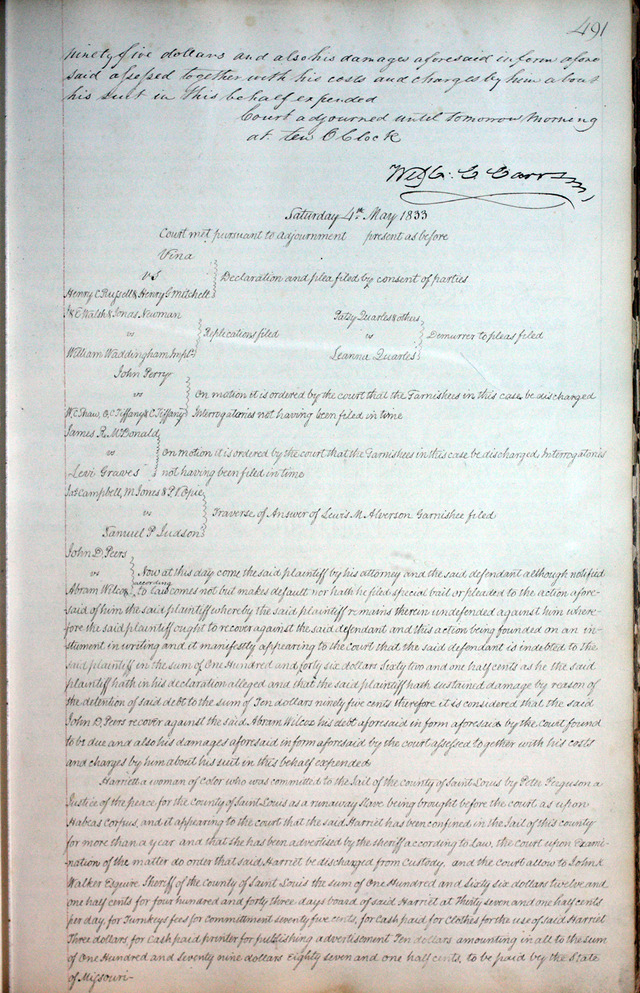 491
ninety five dollars and also his damages aforesaid in form afore
said assessed together with his costs and charges by him about
his suit in this behalf expended
Court adjourned until tomorrow Morning
at ten O Clock
Wm. C. Carr
Saturday 4th May 1833
Court met pursuant to adjournment present as before
Vina
vs
Declaration and plea filed by consent of parties
Henry C. Russell & Henry G Mitchell
J & E Walsh & Jonas Newman
vs
Replications filed
William Waddingham Impl.
Patsy Quarles & others
vs
Demurrer to pleas filed
Leanna Quarles
John Perry
vs
On motion it is ordered by the court that the Garnishees in this case be discharged
Wc Shaw, O, C Tiffany & C Tiffany
Interogatories not having been filed in time
James R. McDonald
vs
On motion it is ordered by the court that the Garnishees in this case be discharged Interrogatories
Levi Graves
not having been filed in time
Jas Campbell, M Jones & P. T. Opie
vs
Traverse of Answer of Lewis M. Alverson Garnishee filed
Samuel P Judson
John D, Peers
vs
Now at this day come the said plaintiff by his attorney and the said defendant although notified
Abram Wilcox
according to Law comes not but makes default nor hath he filed special bail or pleaded to the action afore-
said of him the said plaintiff whereby the said plaintiff remains therein undefended against him where-
fore the said plaintiff ought to recover against the said defendant and this action being founded on an in-
stument in writing and it manifestly appearing to the court that the said defendant is indebted to the
said plaintiff in the sum of One Hundred and forty six dollars Sixty two and one half cents as he the said
plaintiff hath in his declaration alleged and that the said plaintiff hath sustained damage by reason of
the detention of said debt to the sum of Ten dollars ninety five cents therefore it is considered that the said
John D, Peers recover against the said Abram Wilcox his debt aforesaid in form aforesaid by the court found
to be due and also his damages aforesaid in form aforesaid by the court assessed together with his costs
and charges by him about his suit in this behalf expended
Harriett a woman of color who was committed to the Jail of the county of Saint Louis by Peter Ferguson a
Justice of the peace for the county of Saint Louis as a runaway slave being brought before the court as upon
Habeas Corpus, and it appearing to the court that the said Harriet has been confined in the Jail of this county
for more than a year and that she has been advertised by the sheriff according to Law, the court upon Exami-
nation of the matter do order that said Harriet be discharged from Custody, and the court allow to John K
Walker Esquire Sheriff of the county of Saint Louis the sum of One Hundred and Sixty six dollars twelve and
one half cents for four hundred and forty three days board of said Harriet at Thirty seven and one half cents
per day, for Turnkeys fees for committment seventy five cents, for Cash paid for Clothes for the use of said Harriet
Three dollars for Cash paid printer for publishing advertisement Ten dollars amounting in all to the sum
of One Hundred and Seventy nine dollars Eighty seven and one half cents, to be paid by the State
of Missouri-